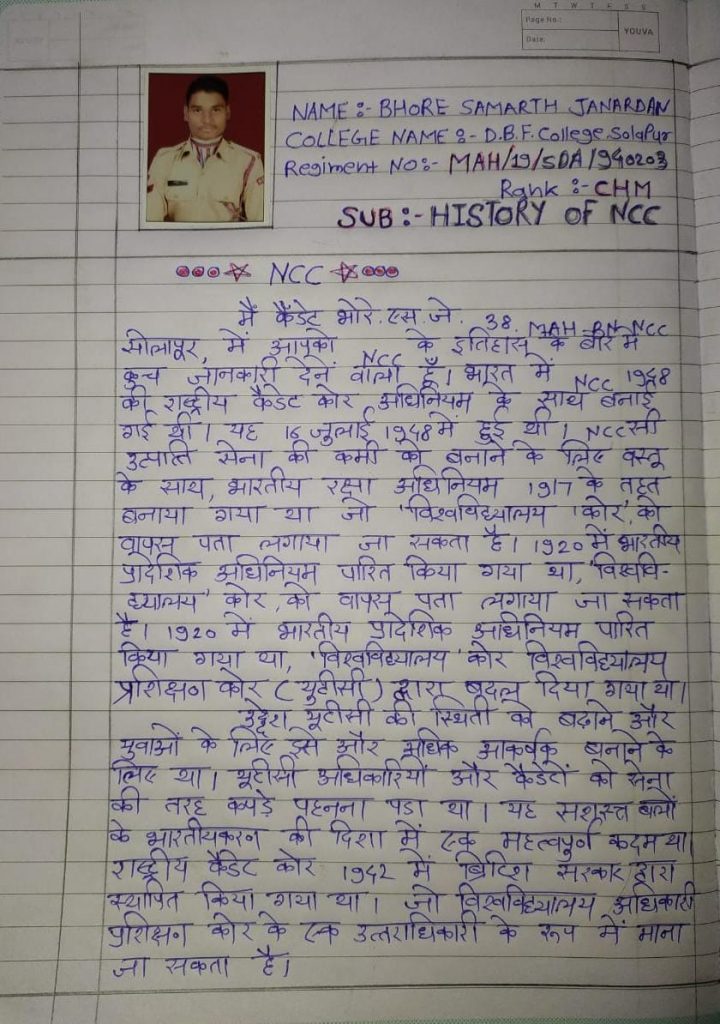 M T W T F S S
Page No.:
Date:
YOUVA
NAME :- BHORE SAMARTH JANARDAN
COLLEGE NAME :- D.B.F. College, Solapur
Regiment No:- MAH/19/SDA/940203
Rank :- CHM
SUB :- HISTORY OF NCC
NCC
मैं कैडेट भोरे. एस. जे. 38 MAH BN NCC
सोलापूर, में आपको NCC के इतिहास के बारे में
कुच जानकारी देने वाला हूँ। भारत में NCC 1948
की राष्ट्रीय कैडेट कोर अधिनियम के साथ बनाई
गई थी। यह 16 जुलाई 1948 में हुई थी। NCC सी
उत्पत्ति सेना की कमी को बनाने के लिए वस्तू
के साथ, भारतीय रक्षा अधिनियम 1917 के तहत
बनाया गया था जो 'विश्वविद्यालय कोर', को
वापस पता लगाया जा सकता है। 1920 में भारतीय
प्रादेशिक अधिनियम पारित किया गया था, 'विश्ववि-
द्यालय' कोर, को वापस पता लगाया जा सकता
है। 1920 में भारतीय प्रादेशिक अधिनियम पारित
किया गया था, 'विश्वविद्यालय' कोर विश्वविद्यालय
प्रशिक्षण कोर (युटीसी) द्वारा बदल दिया गया था।
उद्देश यूटीसी की स्थिती को बढ़ाने और
युवाओं के लिए इसे और अधिक आकर्षक बनाने के
लिए था। यूटीसी अधिकारियों और कैडेटों को सेना
की तरह कपड़े पहनना पडा था। यह सशस्त्र बलों
के भारतीयकरण की दिशा में एक महत्वपुर्ण कदम था।
राष्ट्रीय कैडेट कोर 1942 में ब्रिटिश सरकार द्वारा
स्थापित किया गया था। जो विश्वविद्यालय अधिकारी
प्रशिक्षण कोर के एक उत्तराधिकारी के रूप में माना
जा सकता है।